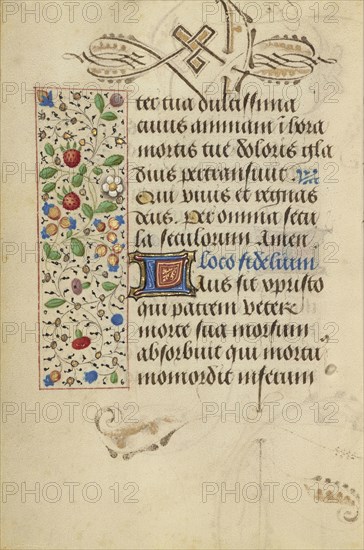 ter tua dulcissima
cuius animam i hora
mortis tue doloris gla
dius pertransiuit.
Qui viuis et regnas
deus. Per omnia secu
la seculorum Amen
loco fidelium
Laus sit xpristo
qui patrem vetere
morte sua morsum
absorbuit qui mortu
momordit infernum
PHOTO 12